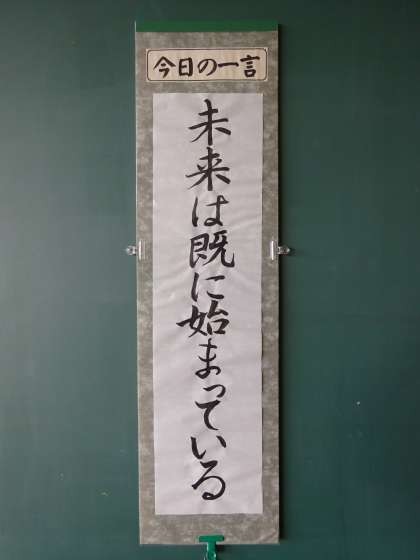 今日の一言
未来は既に始まっている